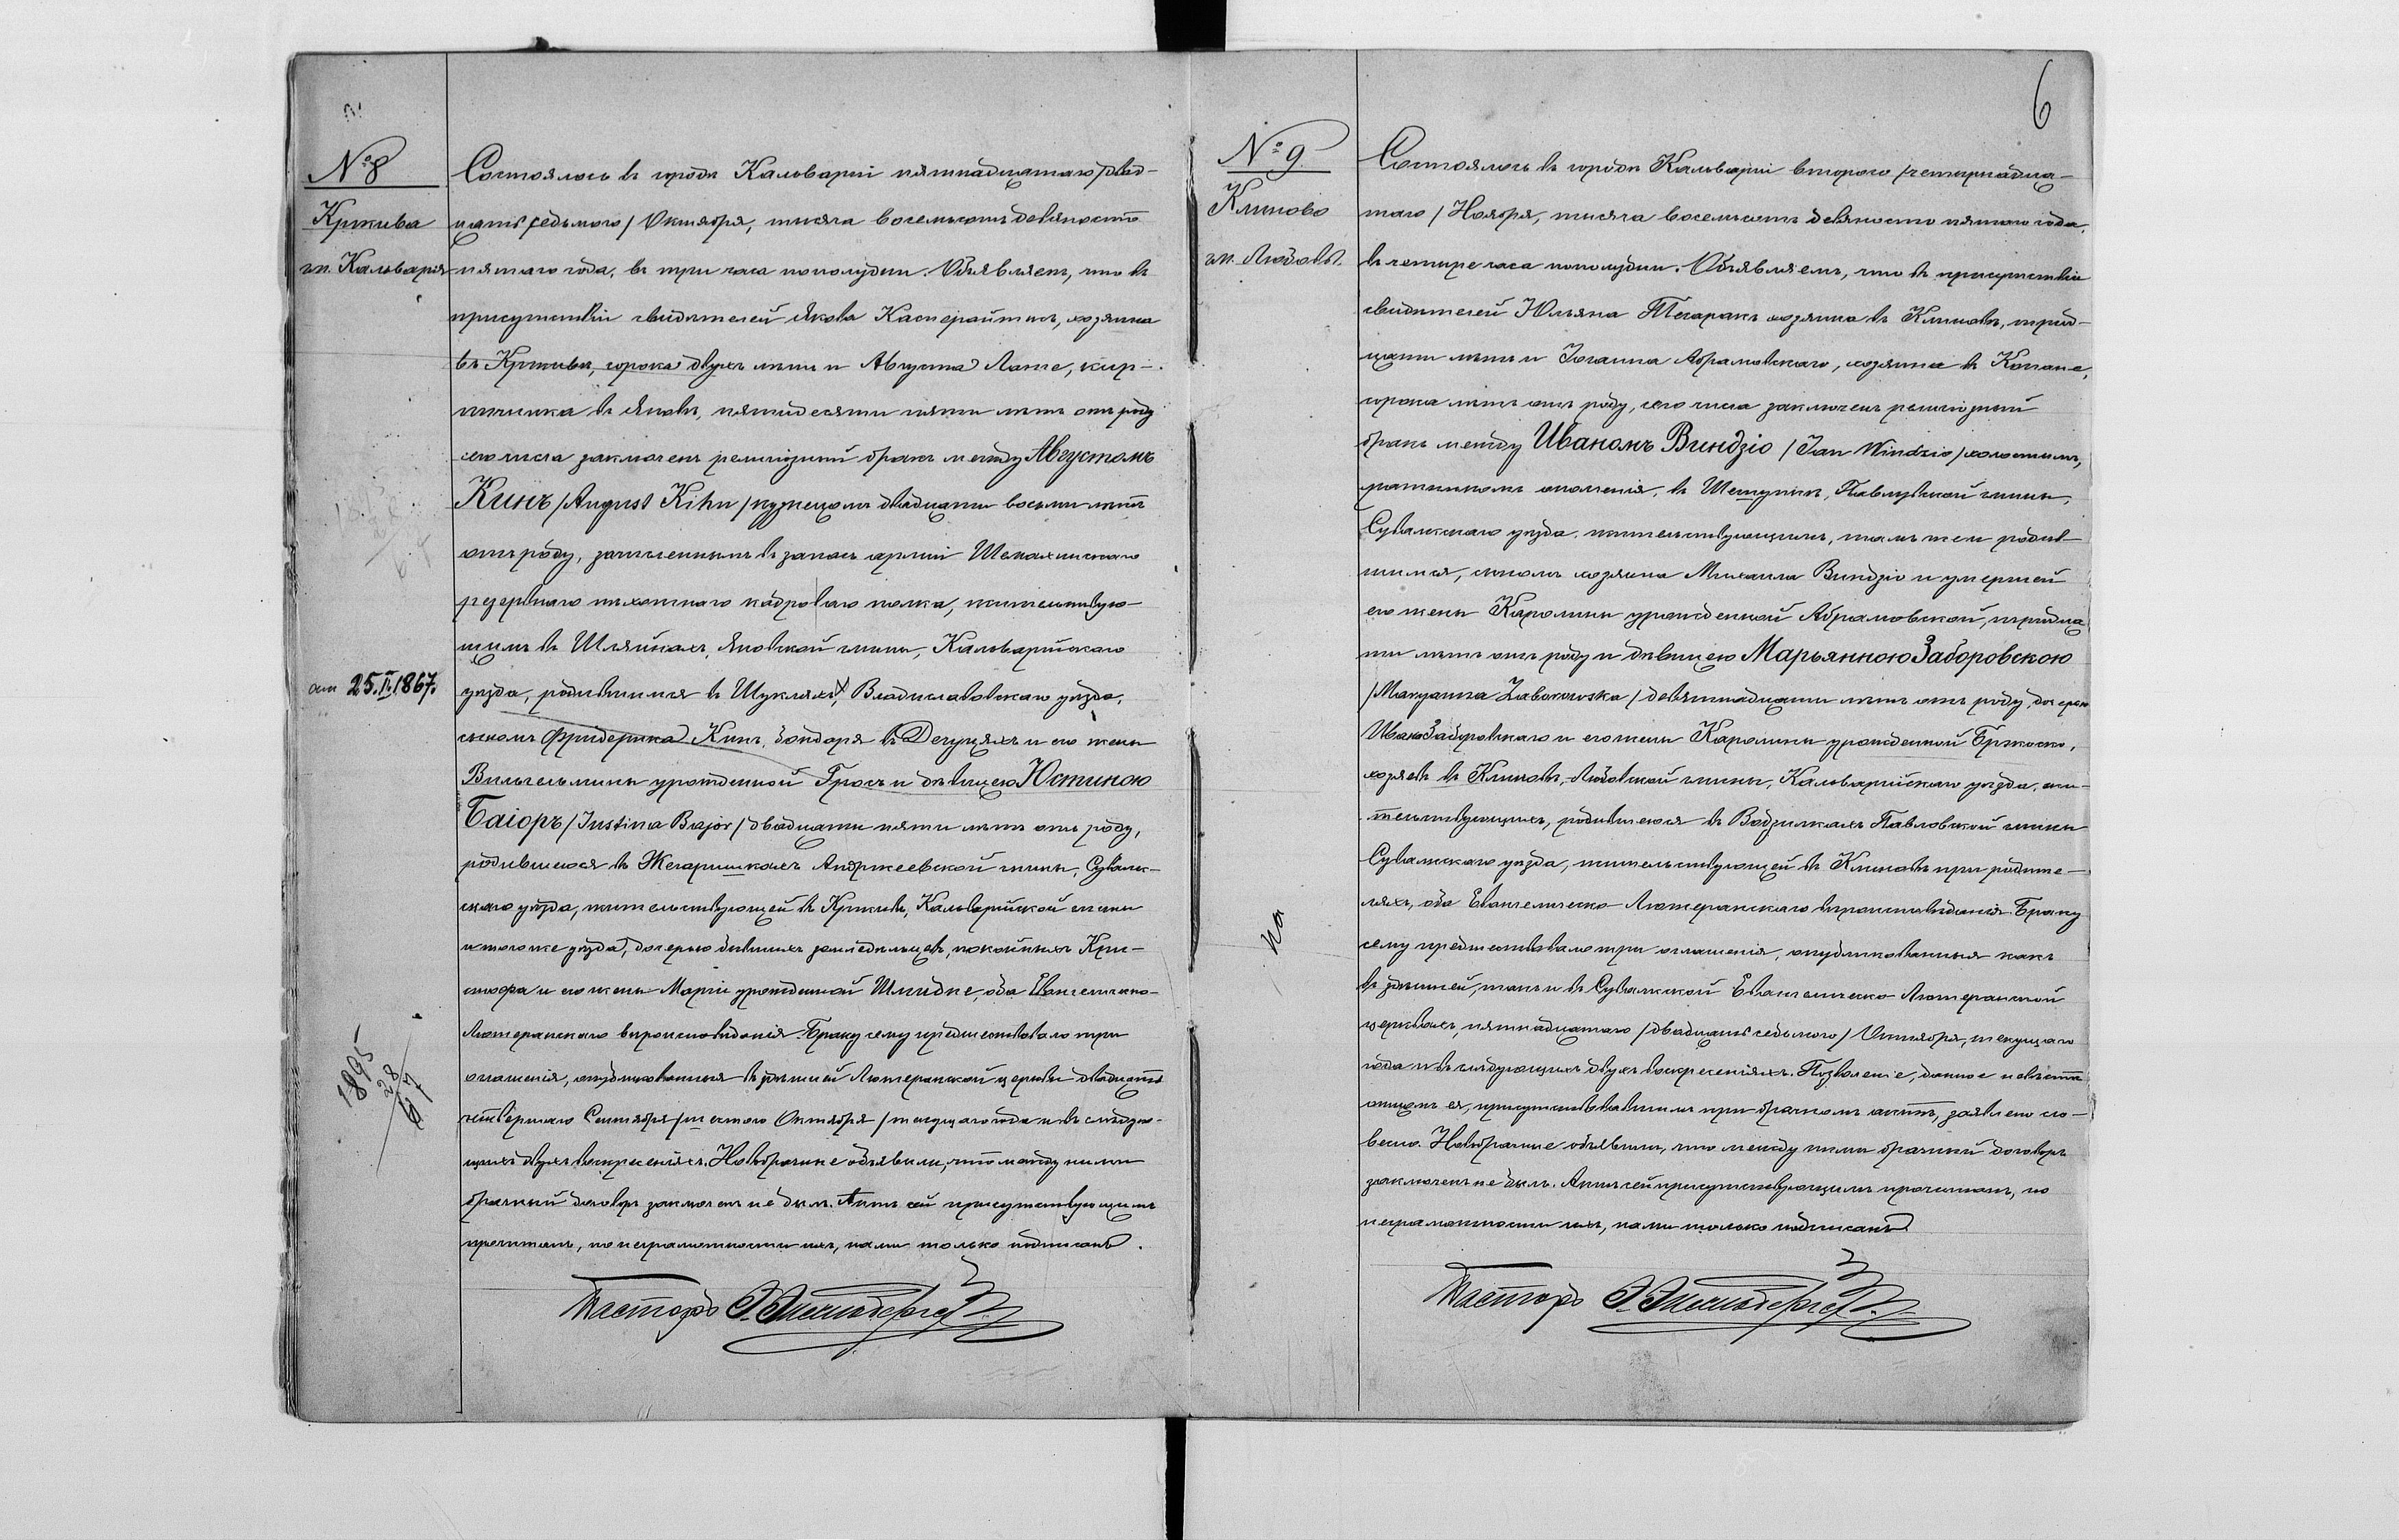 6
№ 8
Кржива
гм. Кальварія
Состоялось въ городѣ Кальваріи пятнадцатаго /двад-
цать седьмого/ Октября, тысяча восемьсотъ девяносто
пятаго года, въ три часа пополудни. Объявляемъ, что въ
присутствіи свидѣтелей Якова Касперайтисъ, хозяина
въ Крживи, сорока двухъ лѣтъ и Августа Лате, кир-
пичника въ Яновѣ, пятидесяти пяти лѣтъ отъ роду
сего числа заключенъ религіозный бракъ между Августомъ
Кинъ /August Kihn/ кузнецомъ двадцати восьми лѣтъ
отъ роду, зачисленнымъ въ запасъ арміи Шемахинскаго
резервнаго пѣхотнаго кадроваго полка, жительствую-
щимъ въ Шляйнахъ, Яновской гмины, Кальварійскаго
от 25.II.1867.
уѣзда, родившимся въ Шукляхъ, Владиславовскаго уѣзда,
сыномъ Фридерика Кинъ, бондаря въ Дегуцяхъ и его жены
Вильгельмины урожденной Гросъ и дѣвицею Юстиною
Баіоръ /Justina Bajor/ двадцати пяти лѣтъ отъ роду,
родившеюся въ Жегаришкахъ Андржеевской гмины, Сувалк-
скаго уѣзда, жительствующей въ Крживѣ, Кальварійской гмины
и того же уѣзда, дочерью бывшихъ земледѣльцевъ, покойныхъ Кри-
стофа и его жены Маріи урожденной Шмидке, оба Евангелическо-
Лютеранскаго вѣроисповѣданія. Браку сему предшествовало три
1895
28
67
оглашенія, опубликованныя въ здѣшней Лютеранской церкви двадцать
четвертаго Сентября /шестого Октября/ текущаго года и въ слѣдую-
щихъ двухъ воскресеніяхъ. Новобрачные объявили, что между ними
брачный договоръ заключенъ не былъ. Актъ сей присутствующимъ
прочитанъ, по неграмотности ихъ, нами только подписанъ.
Пасторъ
№ 9
Клиново
гм. Любовъ
Состоялось въ городѣ Кальваріи второго /четырнадца-
таго/ Ноября, тысяча восемьсотъ девяносто пятаго года,
въ четыре часа пополудни. Объявляемъ, что въ присутствіи
свидѣтелей Юльяна хозяина въ Клиновѣ, трид-
цати лѣтъ и Іоганна Абрамовскаго, хозяина въ
сорока лѣтъ отъ роду, сего числа заключенъ религіозный
бракъ между Иваномъ Виндзіо /Jan Windzio/ холостымъ,
ратникомъ ополченія, въ Павловской гмины,
Сувалкскаго уѣзда жительствующимъ, тамъ же родив-
шимся, сыномъ хозяина Михаила Виндзіо и умершей
его жены Каролины урожденной Абрамовской, тридца
ти лѣтъ отъ роду и дѣвицею Марьянною Заборовскою
/Maryanna Zaborowska/ девятнадцати лѣтъ отъ роду, дочерью
Ивана Заборовскаго и его жены Каролины урожденной Бржоско,
хозяевъ въ Клиновѣ, Любовской гмины, Кальварійскаго уѣзда, жи-
тельствующихъ, родившеюся въ Водзилкахъ Павловской гмины
Сувалкскаго уѣзда, жительствующей въ Клиновѣ при родите-
ляхъ, оба Евангелическо-Лютеранскаго вѣроисповѣданія. Браку
сему предшествовало три оглашенія, опубликованныя какъ
въ здѣшней, такъ и въ Сувалкской Евангелическо-Лютеранской
церквахъ, пятнадцатаго /двадцать седьмого/ Октября, текущаго
года и въ слѣдующихъ двухъ воскресеніяхъ. Позволеніе, данное невѣстѣ
отцомъ ея, присутствовавшимъ при брачномъ актѣ, заявлено сло-
весно. Новобрачные объявили, что между ними брачный договоръ
заключенъ не былъ. Актъ сей присутствующимъ прочитанъ, по
неграмотности ихъ, нами только подписанъ
Пасторъ